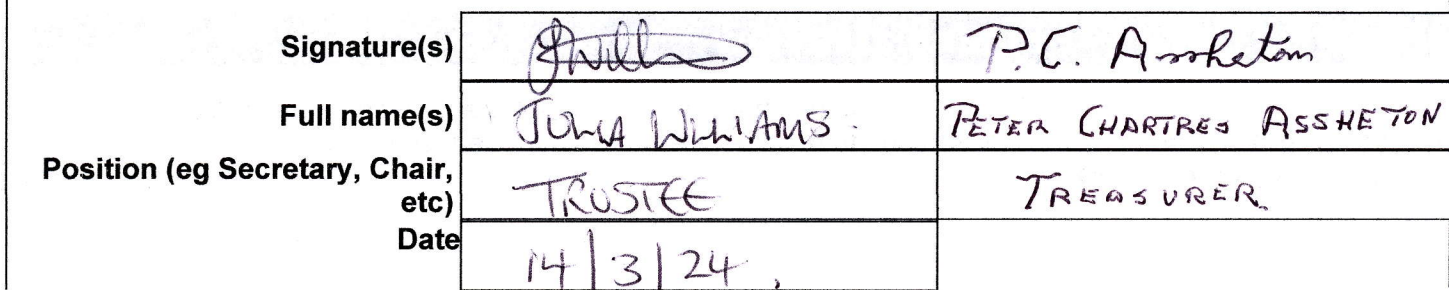 Signature(s) P.C. Assheton
Full name(s) JULIA WILLIAMS. PETER CHARTRES ASSHETON
Position (eg Secretary, Chair,
etc) TRUSTEE TREASURER
Date
14/3/24